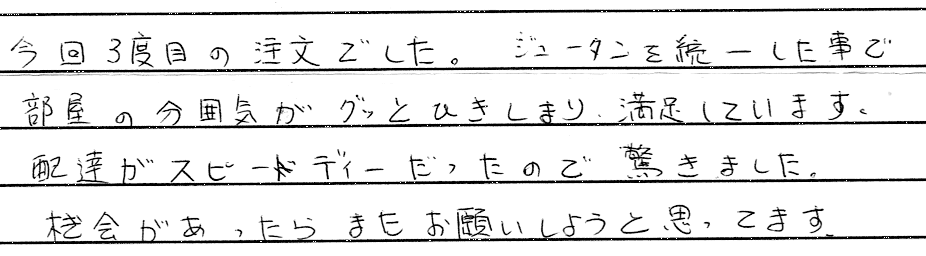 今回3度目の注文でした。 ジュータンを統一した事で
部屋の分囲気がグッとひきしまり、満足しています。
配達がスピードディーだったので 驚きました。
機会があったら またお願いしようと思ってます。